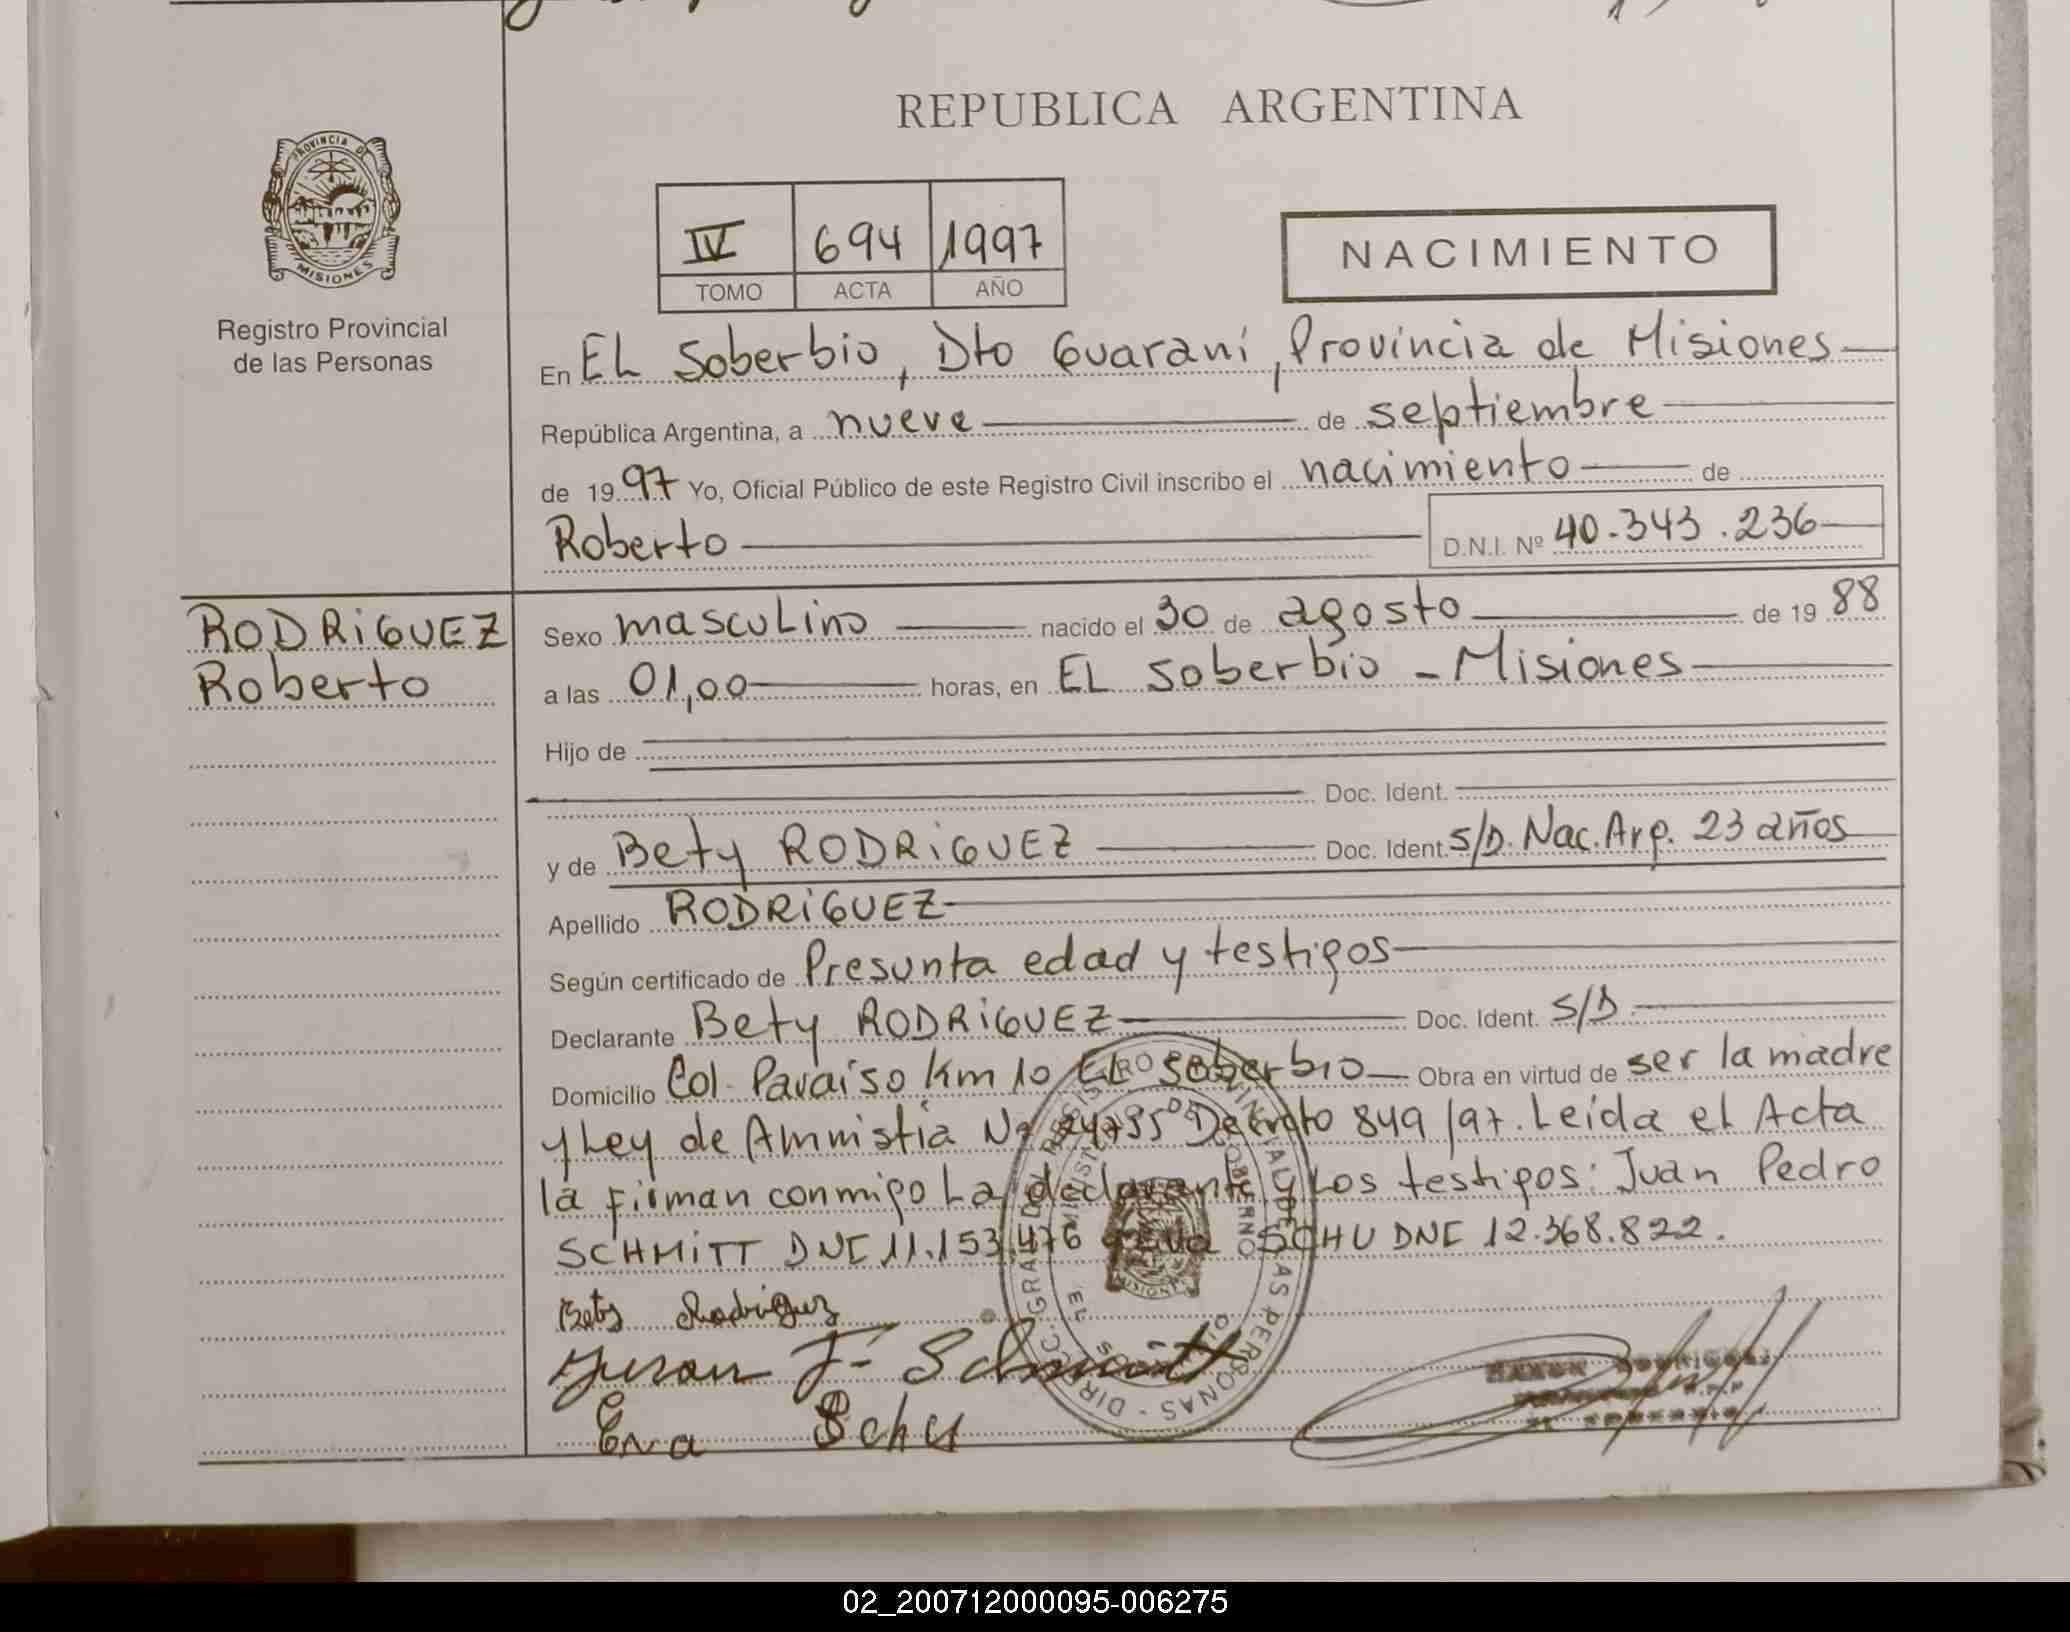 REPUBLICA ARGENTINA
PROVINCIA DE
MISIONES
Registro Provincial
de las Personas
IV 694 1997
TOMO ACTA AÑO
NACIMIENTO
En EL Soberbio, Dto Guaraní, Provincia de Misiones
República Argentina, a nueve de septiembre
de 1997 Yo, Oficial Público de este Registro Civil inscribo el nacimiento de
Roberto D.N.I. Nº 40.343.236
RODRiGUEZ
Roberto
Sexo mascuLino nacido el 30 de agosto de 1988
a las 01,00 horas, en EL Soberbio - Misiones
Hijo de
Doc. Ident.
y de Bety RODRiGUEZ Doc. Ident. S/D. Nac. Arg. 23 años
Apellido RODRiGUEZ
Según certificado de Presunta edad y testigos
Declarante Bety RODRiGUEZ Doc. Ident. S/D
Domicilio Col. Paraíso Km 10 EL Soberbio Obra en virtud de ser la madre
y Ley de Amnistia Nº 24755 Decreto 849/97. Leída el Acta
la firman conmigo La declarante y Los testigos: Juan Pedro
SCHMiTT DNI 11.153.476 y Eva SCHU DNI 12.368.822.
Bety Rodriguez
Juan P. Schmitt
Eva Schu
02_200712000095-006275